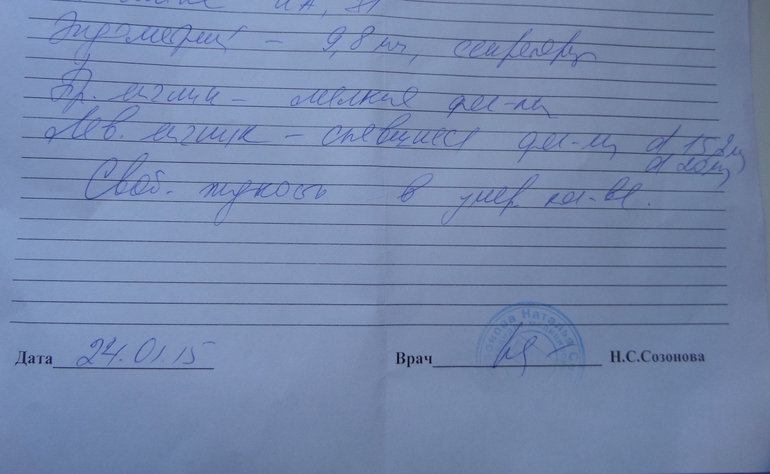 Эндометрий - 9,8 мм, секреторн
Пр. яичник - мелкие фол-лы
Лев. яичник - спавшиеся фол-лы d 15,2мм
d 20мм
Своб. жидкость - в умер. кол-ве.
Дата 24.01.15 Врач Н.С.Созонова